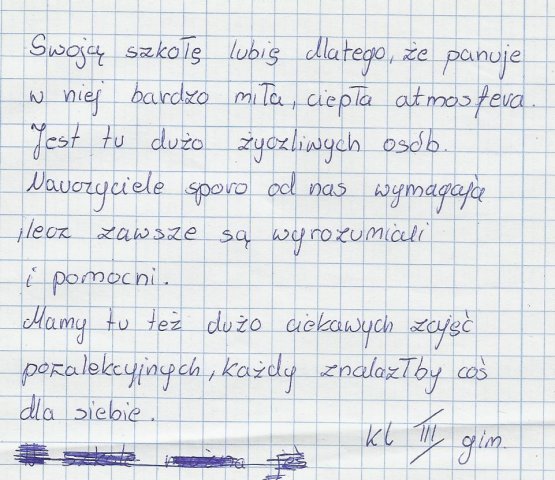 Swoją szkołę lubię dlatego, że panuje
w niej bardzo miła, ciepła atmosfera.
Jest tu dużo życzliwych osób.
Nauczyciele sporo od nas wymagają
, lecz zawsze są wyrozumiali
i pomocni.
Mamy tu też dużo ciekawych zajęć
pozalekcyjnych, każdy znalazłby coś
dla siebie.
kl III gim.